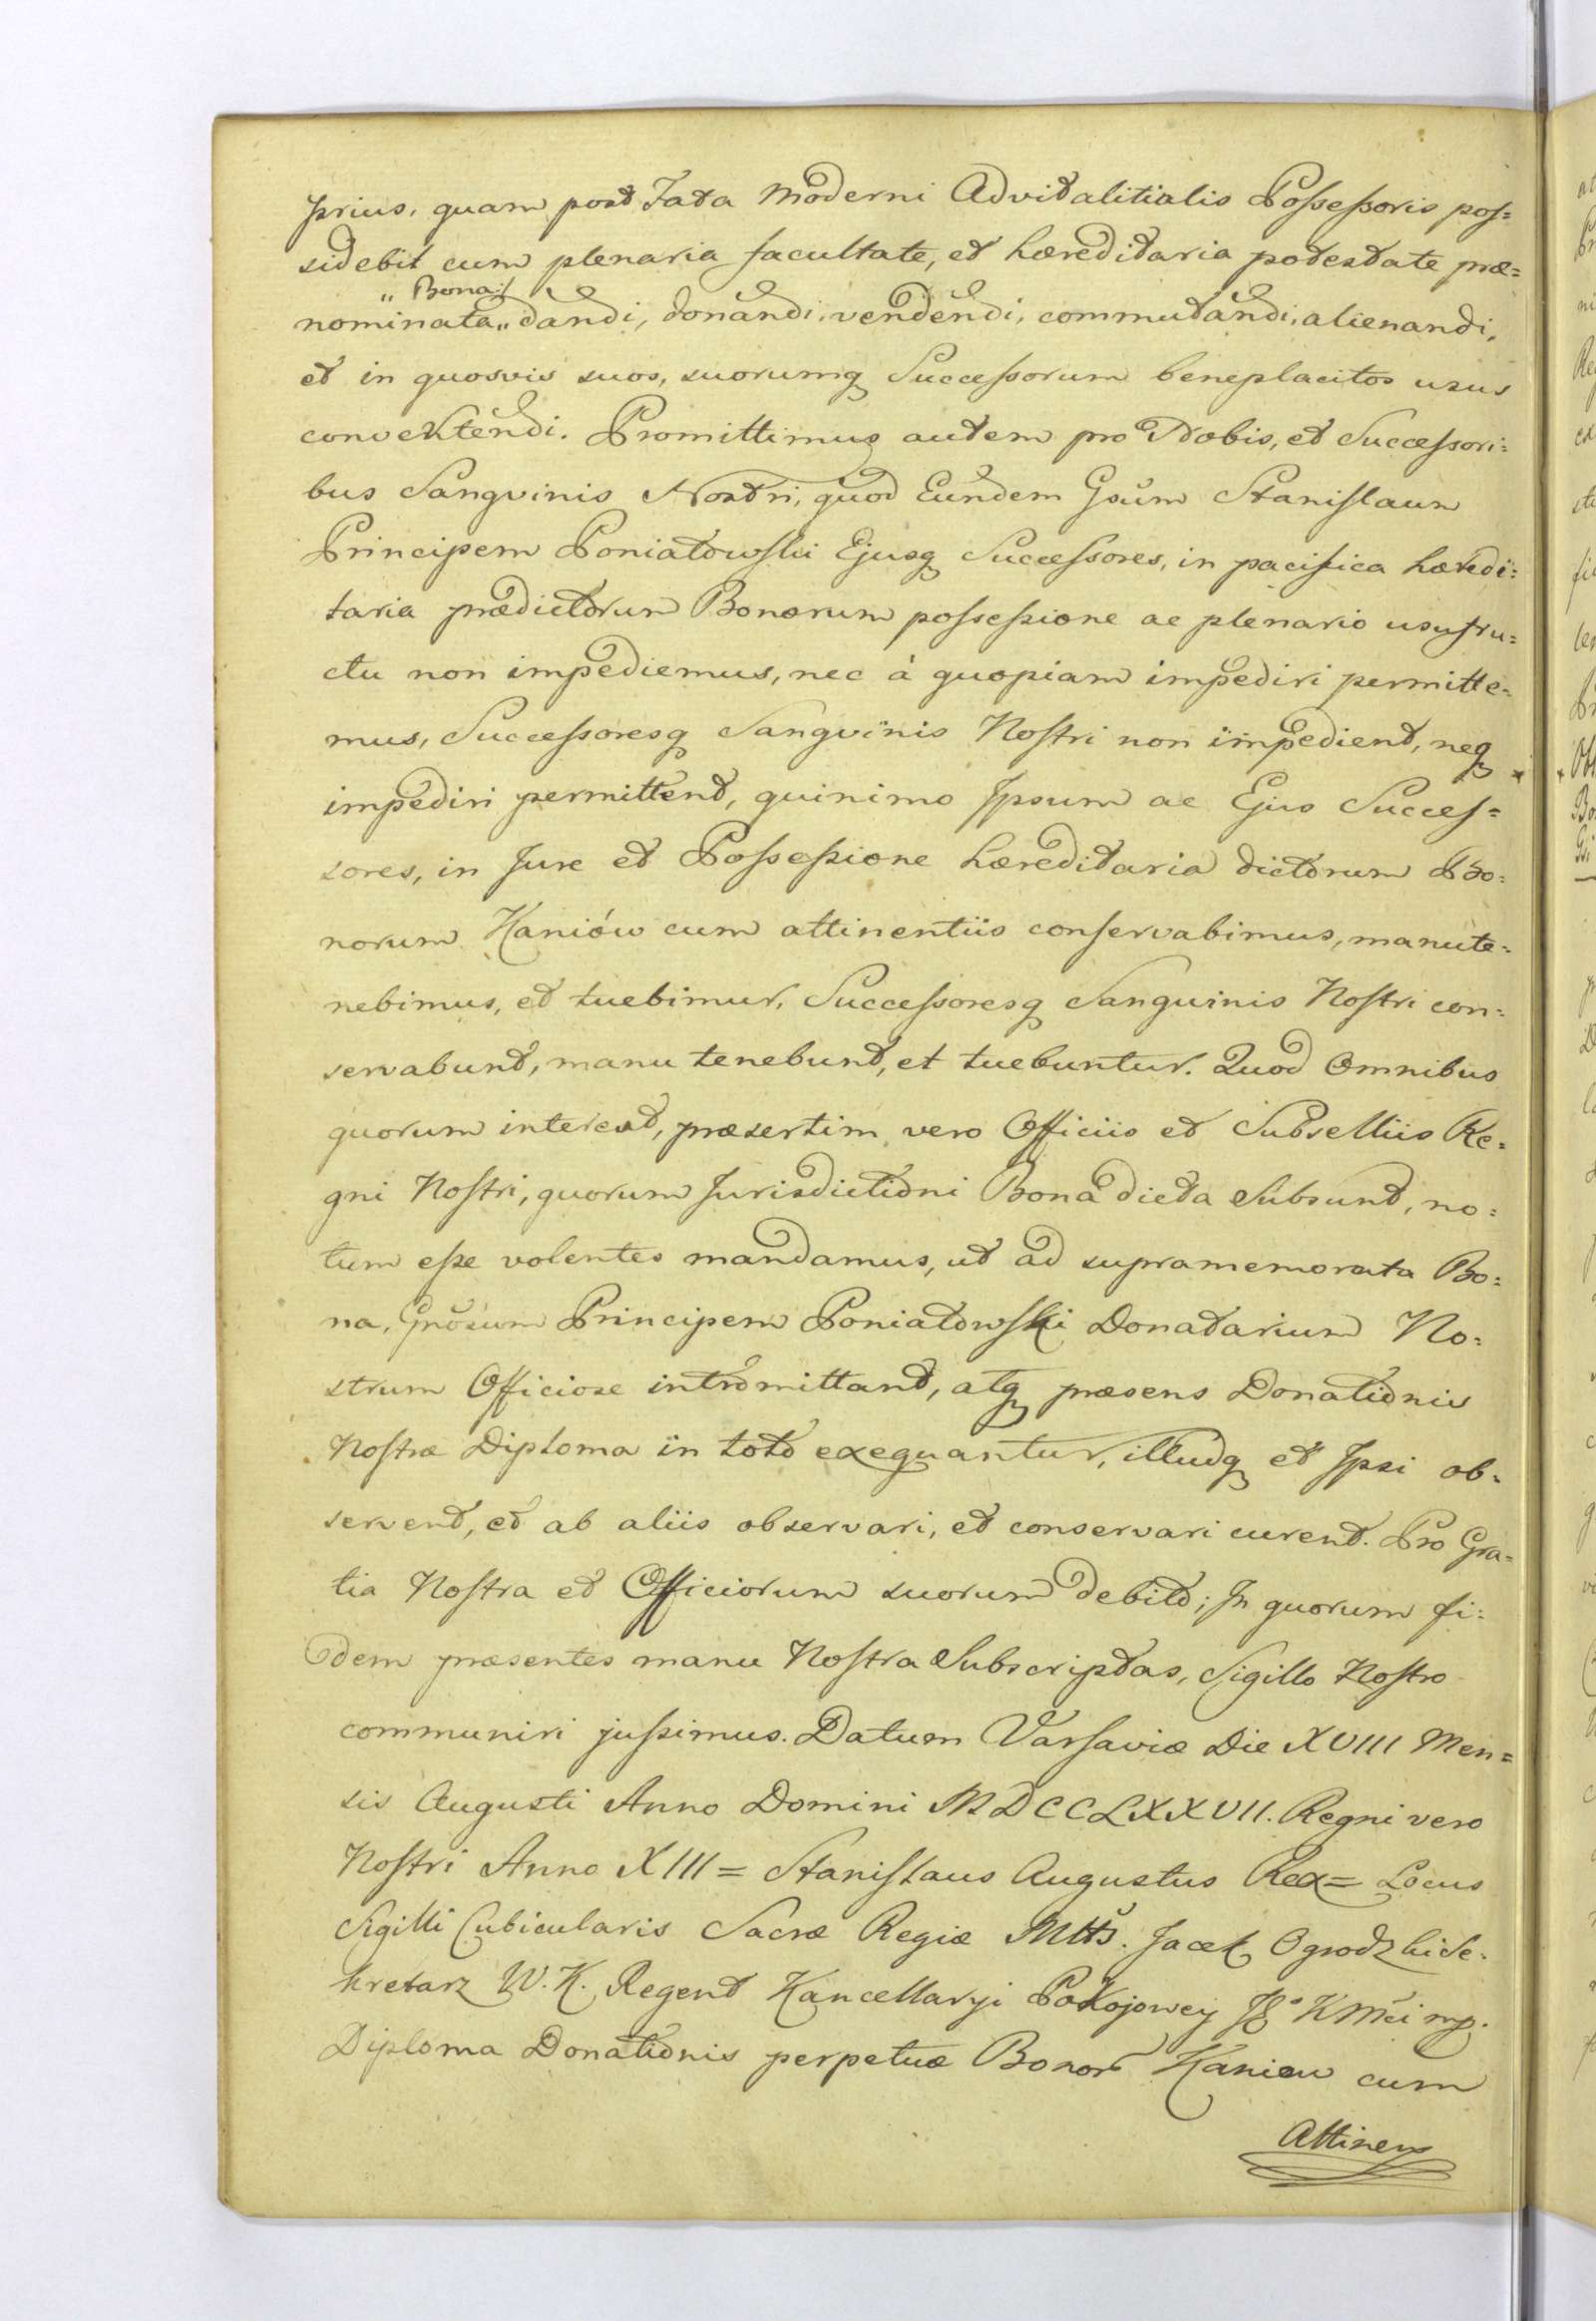 prius, quam post Fata Moderni Advitalitialis Possessoris pos=
sidebit cum plenaria facultate, et hæreditaria potestate præ=
„ Bona:/
nominata„ dandi, donandi, vendendi, commutandi, alienandi,
et in quosvis suos, suorumq Successorum beneplacitos usus
convertendi. Promittimus autem pro Nobis, et Successori=
bus Sangvinis Nostri, quod Eundem Gsum Stanislaum
Principem Poniatowski Ejusq Successores, in pacifica hæredi=
taria prædictorum Bonorum possessione ac plenario usufru=
ctu non impediemus, nec à quopiam impediri permitte=
mus, Successoresq Sangvinis Nostri non impedient, neq
impediri permittent, quinimo Ipsum ac Ejus Succes=
sores, in Jure et Possessione hæreditaria dictorum Bo=
norum Kaniów cum attinentiis conservabimus, manute=
nebimus, et tuebimur, Successoresq Sanguinis Nostri con=
servabunt, manu tenebunt, et tuebuntur. Quod Omnibus
quorum interest, præsertim vero Officiis et Subselliis Re=
gni Nostri, quorum Jurisdictioni Bona dicta Subsunt, no=
tum esse volentes mandamus, ut ad supramemorata Bo=
na, Gnosum Principem Poniatowski Donatarium No=
strum Officiose intromittant, atq præsens Donationis
Nostræ Diploma in toto exequantur, illudq et Ipsi ob=
servent, et ab aliis observari, et conservari curent. Pro Gra=
tia Nostra et Officiorum suorum debito; In quorum fi=
dem præsentes manu Nostra Subscriptas, Sigillo Nostro
communiri jussimus. Datum Varsaviæ Die XVIII Men=
sis Augusti Anno Domini MDCCLXXVII. Regni vero
Nostri Anno XIII = Stanislaus Augustus Rex = Locus
Sigilli Cubicularis Sacræ Regiæ Mttis. Jacek Ogrodzki Se=
kretarz W. K. Regent Kancellaryi Pokojowey JKMci mp.
Diploma Donationis perpetuæ Bonor Kaniow cum
Attinen